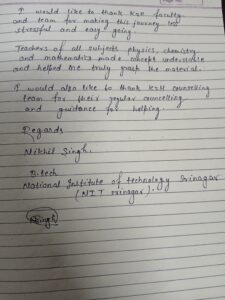 I would like to thank KSH faculty
and team for making this journey less
stressful and easy going.
Teachers of all subjects physics, chemistry
and mathematics made concepts
and helped me truly grasp the material.
I would also like to thank KSH counselling
team for their regular councelling
and guidance for helping.
Regards
Nikhil Singh.
B.tech
National Institute of technology Srinagar
(NIT srinagar).
NSingh